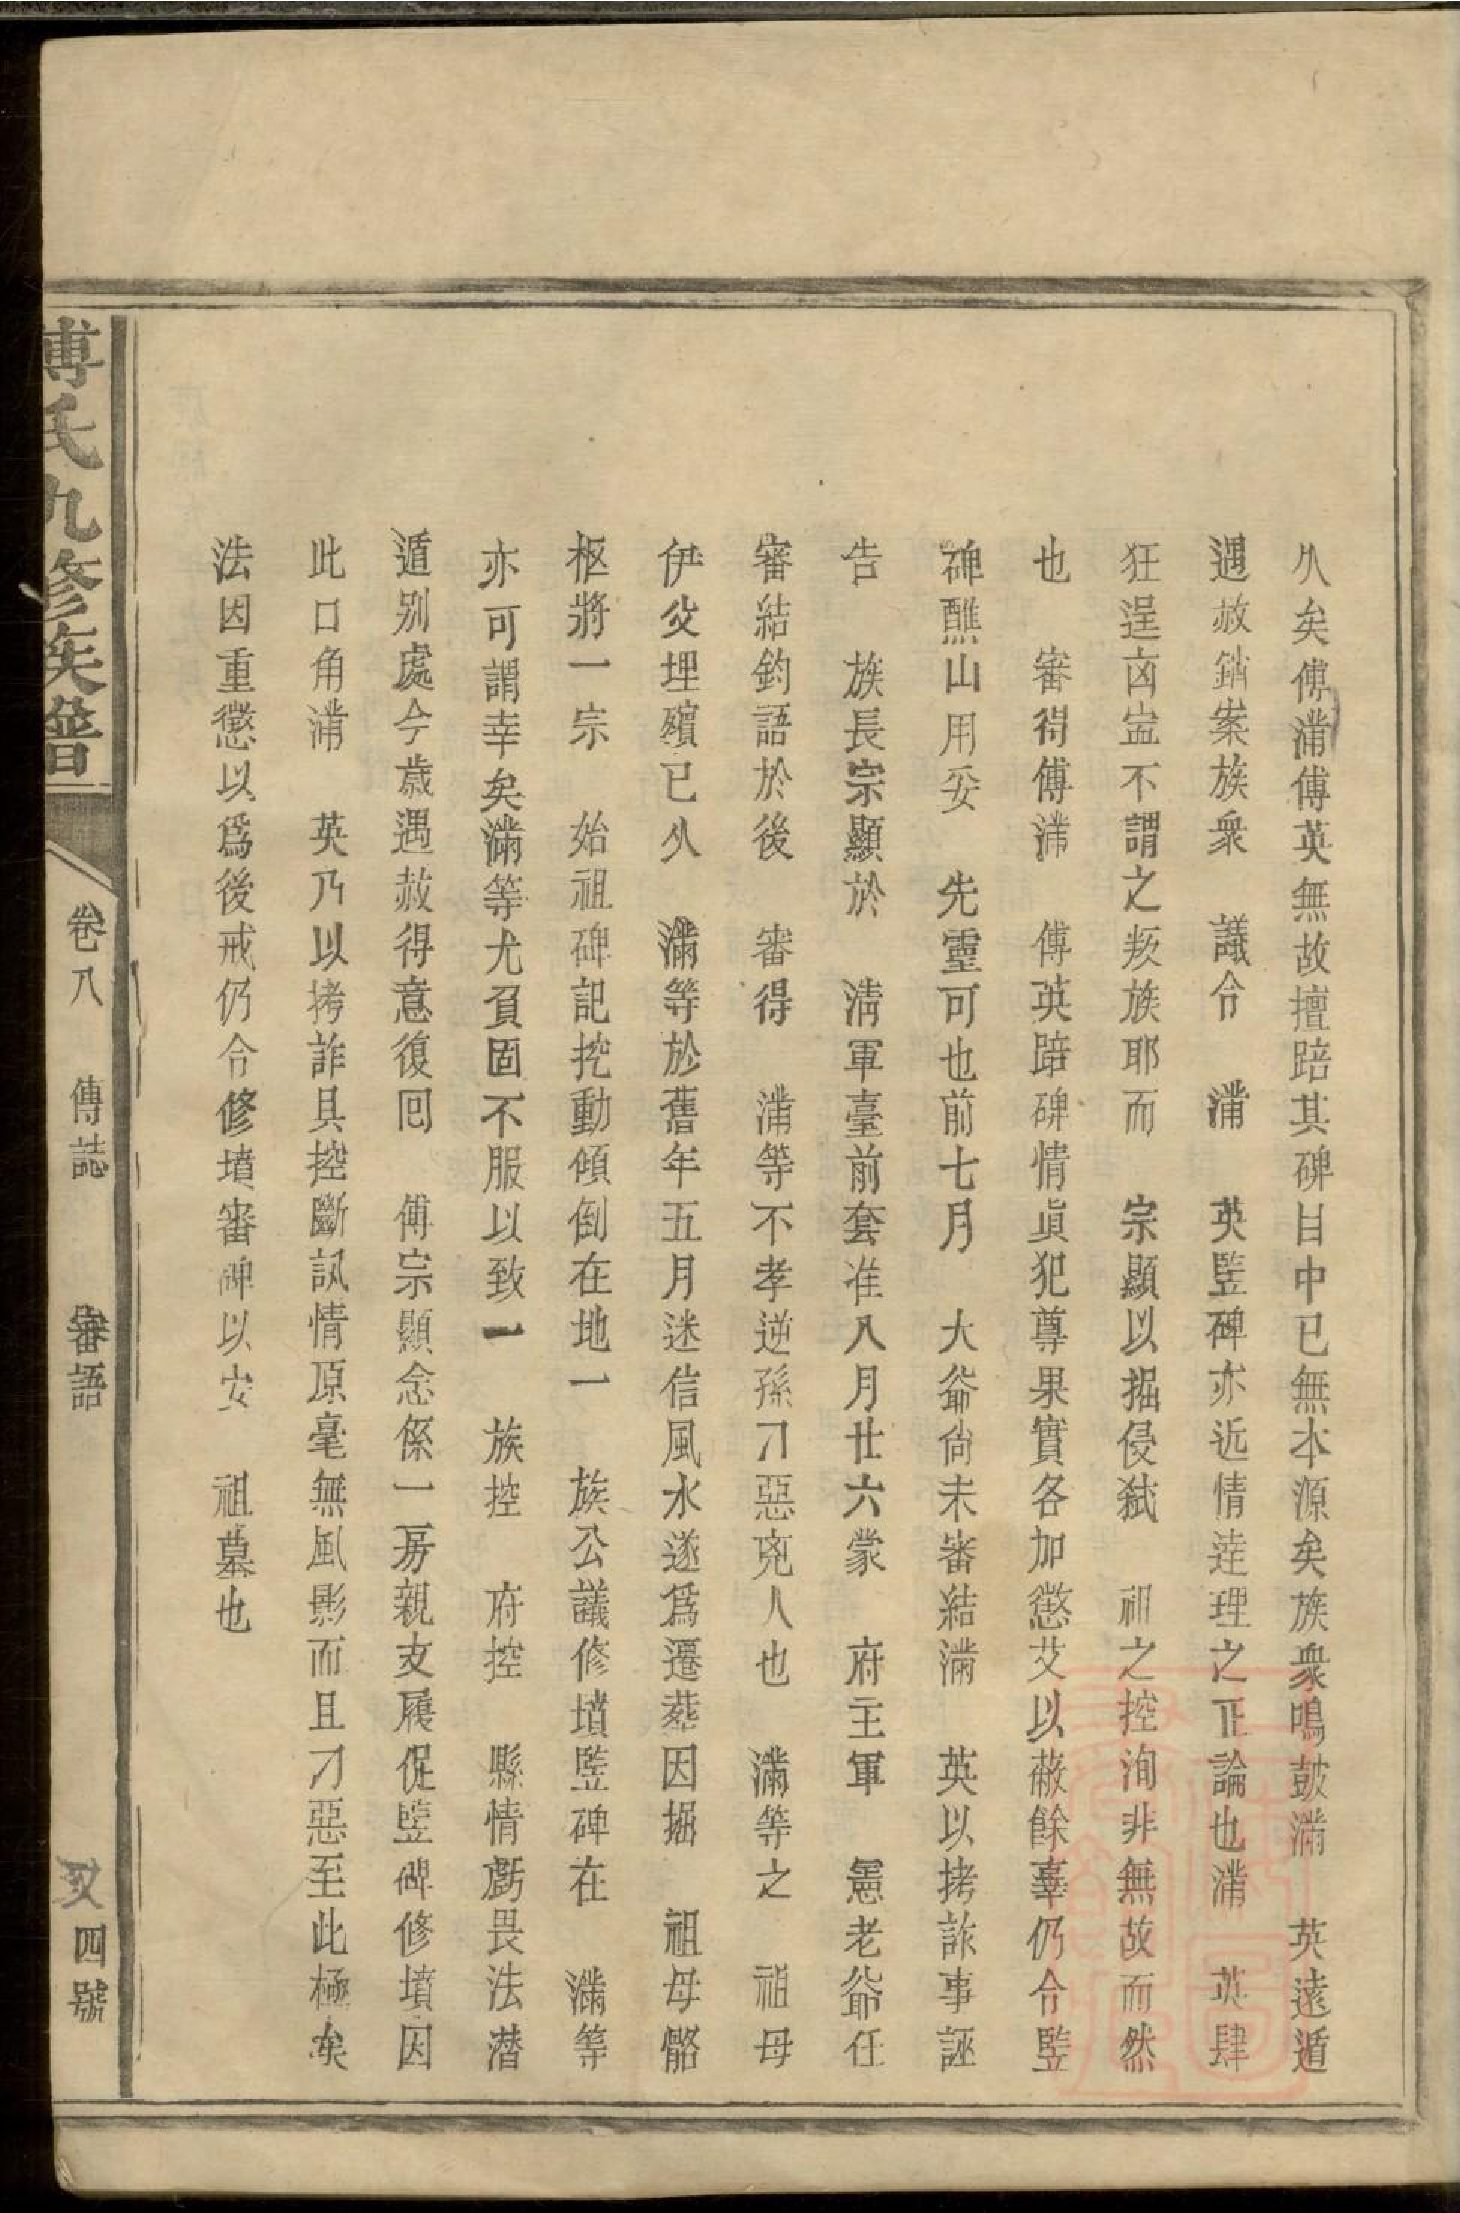 久矣傅滿傅英無故擅踣其碑目中已無本源矣族衆鳴鼓滿　英遠遁
遇赦銷案族衆　議令　滿　英竪碑亦近情逹理之正論也滿　英肆
狂逞凶㿽不謂之叛族耶而　宗顯以掘侵弑　祖之控洵非無故而然
也　審得傅滿　傅英踣碑情眞犯尊果實各加懲艾以蔽餘辜仍令竪
碑醮山用妥　先靈可也前七月　大爺尙未審結滿　英以拷詐事誣
告　族長宗顯於　淸軍臺前套准八月廿六蒙　府主軍　憲老爺任
審結鈞語於後　審得　滿等不孝逆孫刀惡兇人也　滿等之　祖母
伊父埋殯已久　滿等於舊年五月迷信風水遂爲遷葬因掘　祖母骼
柩將一宗　始祖碑記挖動傾倒在地一　族公議修墳竪碑在　滿等
亦可謂幸矣滿等尤負固不服以致一　族控　府控　縣情虧畏法潜
遁别處今歳遇赦得意復回　傅宗顯念係一房親支履促竪碑修墳因
此口角滿　英乃以拷詐具控斷訊情原毫無風影而且刁惡至此極矣
法因重懲以爲後戒仍令修墳審碑以安　祖墓也
傅氏九修族譜
卷八　傳誌　審語
又四號